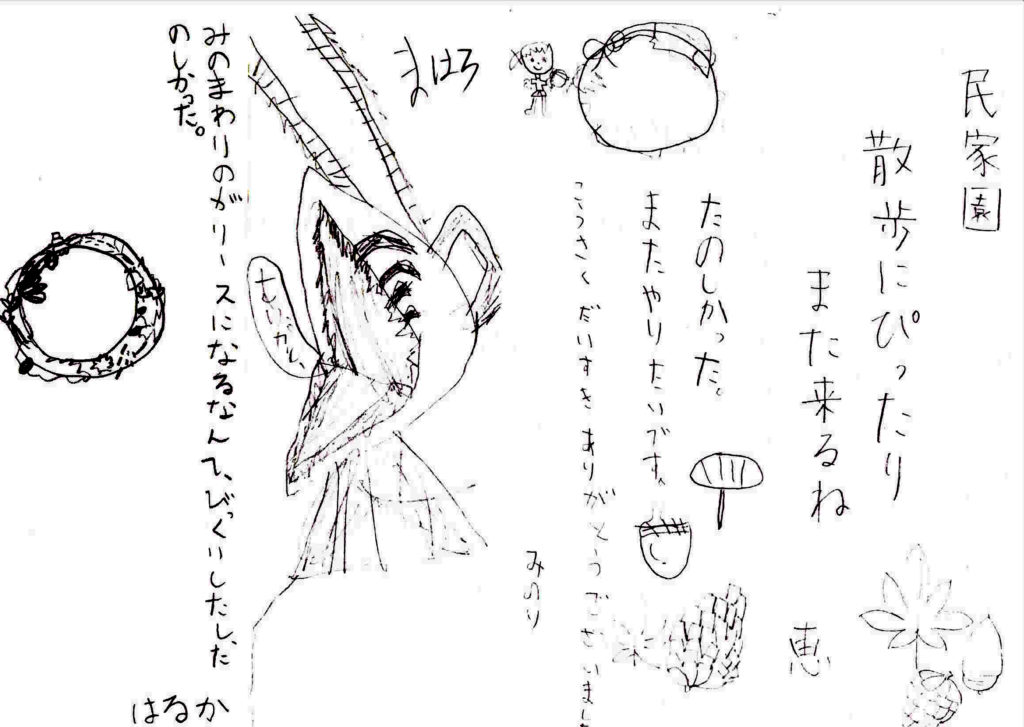 民家園
散歩にぴったり
また来るね
恵
たのしかった。
またやりたいです。
こうさくだいすきありがとうございまし
みのり
まはろ
みのまわりのがリースになるなんて、びっくりしたし、た
のしかった。
はるか